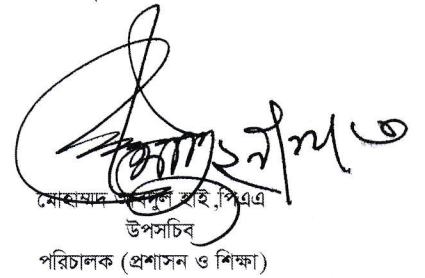 মোহাম্মদ আবদুল হাই,পিএএ
উপসচিব
পরিচালক (প্রশাসন ও শিক্ষা)